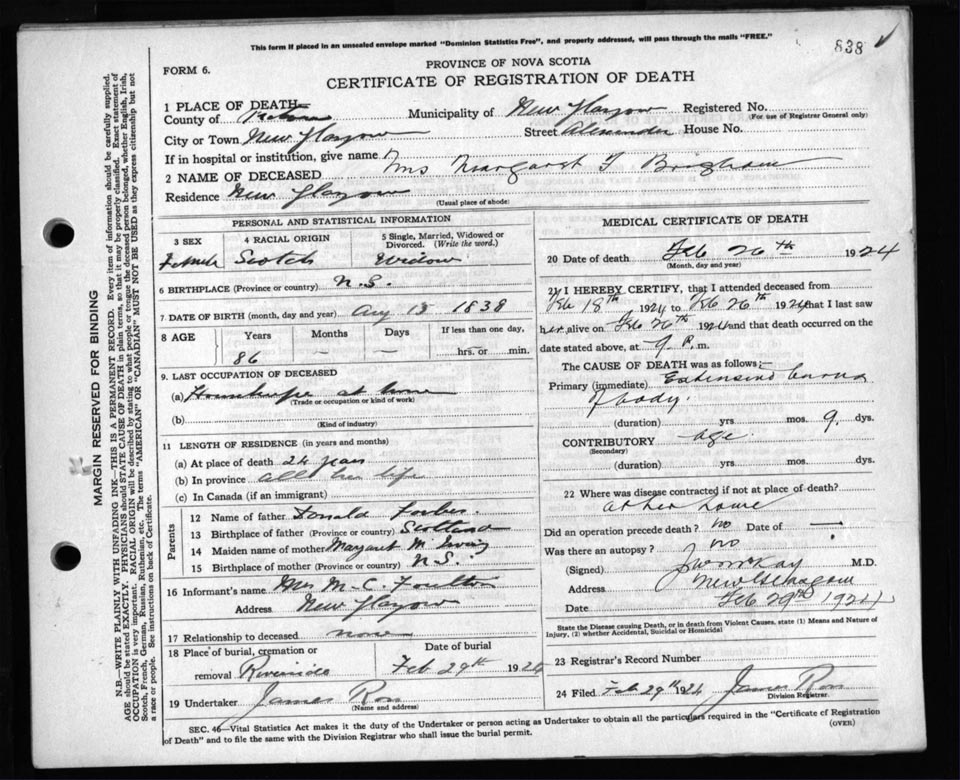 This form if placed in an unsealed envelope marked "Dominion Statistics Free", and properly addressed, will pass through the mails "FREE."
838
PROVINCE OF NOVA SCOTIA
FORM 6.
CERTIFICATE OF REGISTRATION OF DEATH
1 PLACE OF DEATH
County of Municipality of New Glasgow Registered No.
(For use of Registrar General only)
City or Town New Glasgow Street Alexander House No.
If in hospital or institution, give name
2 NAME OF DECEASED Mrs Margaret
Residence New Glasgow
(Usual place of abode)
PERSONAL AND STATISTICAL INFORMATION
3 SEX 4 RACIAL ORIGIN 5 Single, Married, Widowed or Divorced. (Write the word.)
Female Scotch Widow
6 BIRTHPLACE (Province or country) N.S.
7 DATE OF BIRTH (month, day and year) Aug 13 1838
8 AGE Years Months Days If less than one day,
86 — — hrs. or min.
9. LAST OCCUPATION OF DECEASED
(a) at home
(Trade or occupation or kind of work)
(b)
(Kind of industry)
11 LENGTH OF RESIDENCE (in years and months)
(a) At place of death 24 years
(b) In province all her life
(c) In Canada (if an immigrant)
Parents
12 Name of father Donald Forbes
13 Birthplace of father (Province or country) Scotland
14 Maiden name of mother Margaret M.
15 Birthplace of mother (Province or country) N.S.
16 Informant's name Mrs M. C.
Address New Glasgow
17 Relationship to deceased none
18 Place of burial, cremation or removal Riverside
Date of burial
Feb 29th 1924
19 Undertaker James Ross
(Name and address)
MEDICAL CERTIFICATE OF DEATH
20 Date of death Feb 26th 1924
(Month, day and year)
21 I HEREBY CERTIFY, that I attended deceased from
Feb 18th 1924 to Feb 26th 1924 that I last saw
her alive on Feb 26th 1924 and that death occurred on the
date stated above, at 9 P. m.
The CAUSE OF DEATH was as follows:—
Primary (immediate) Extensive burns
of body.
(duration) yrs mos. 9 dys.
CONTRIBUTORY age
(Secondary)
(duration) yrs mos. dys.
22 Where was disease contracted if not at place of death?
at her home
Did an operation precede death? no Date of —
Was there an autopsy? no
(Signed) M.D.
Address New Glasgow
Date Feb 29th 1924
State the Disease causing Death, or in death from Violent Causes, state (1) Means and Nature of
Injury, (2) whether Accidental, Suicidal or Homicidal
23 Registrar's Record Number
24 Filed Feb 29th 1924 James Ross
Division Registrar.
SEC. 46—Vital Statistics Act makes it the duty of the Undertaker or person acting as Undertaker to obtain all the particulars required in the "Certificate of Registration
of Death" and to file the same with the Division Registrar who shall issue the burial permit.
(OVER)
MARGIN RESERVED FOR BINDING
N.B.—WRITE PLAINLY WITH UNFADING INK—THIS IS A PERMANENT RECORD. Every item of information should be carefully supplied.
AGE should be stated EXACTLY. PHYSICIANS should STATE CAUSE OF DEATH in plain terms, so that it may be properly classified. Exact statement of
OCCUPATION is very important. RACIAL ORIGIN will be described by stating to what people or tongue the deceased person belonged, whether English, Irish,
Scotch, French, German, Russian, Ruthenian, etc. The terms "AMERICAN" or "CANADIAN" MUST NOT BE USED as they express citizenship but not
a race or people. See instructions on back of Certificate.